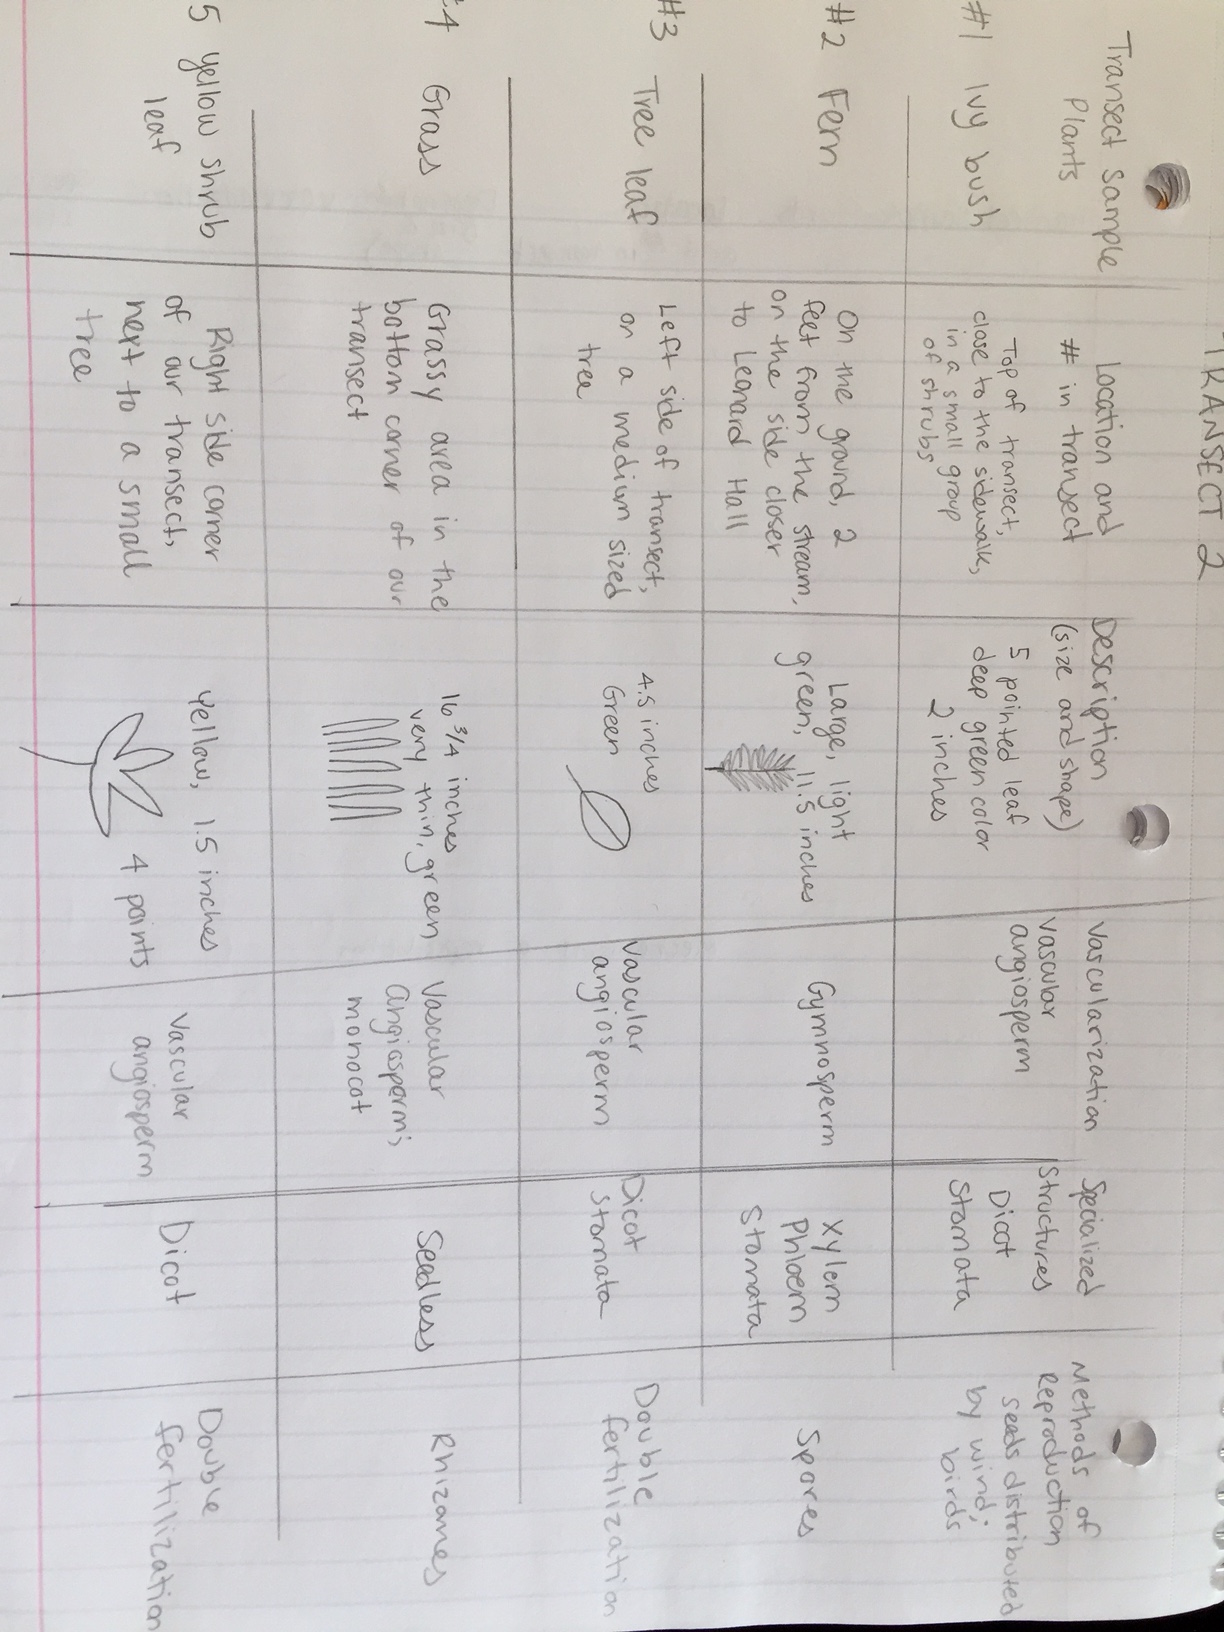 TRANSECT 2
Transect sample
Plants
Location and
# in transect
Description
(size and shape)
Vascularization
Specialized
Structures
Methods of
Reproduction
#1 Ivy bush
Top of transect,
close to the sidewalk,
in a small group
of shrubs
5 pointed leaf
deep green color
2 inches
Vascular
angiosperm
Dicot
Stomata
seeds distributed
by wind;
birds
#2 Fern
On the ground, 2
feet from the stream,
on the side closer
to Leonard Hall
Large, light
green, 11.5 inches
Gymnosperm
Xylem
Phloem
Stomata
Spores
#3 Tree leaf
Left side of transect,
on a medium sized
tree
4.5 inches
Green
Vascular
angiosperm
Dicot
Stomata
Double
fertilization
#4 Grass
Grassy area in the
bottom corner of our
transect
16 3/4 inches
very thin, green
Vascular
Angiosperm;
monocot
Seedless
Rhizomes
5 yellow shrub
leaf
Right side corner
of our transect,
next to a small
tree
Yellow, 1.5 inches
4 points
Vascular
angiosperm
Dicot
Double
fertilization